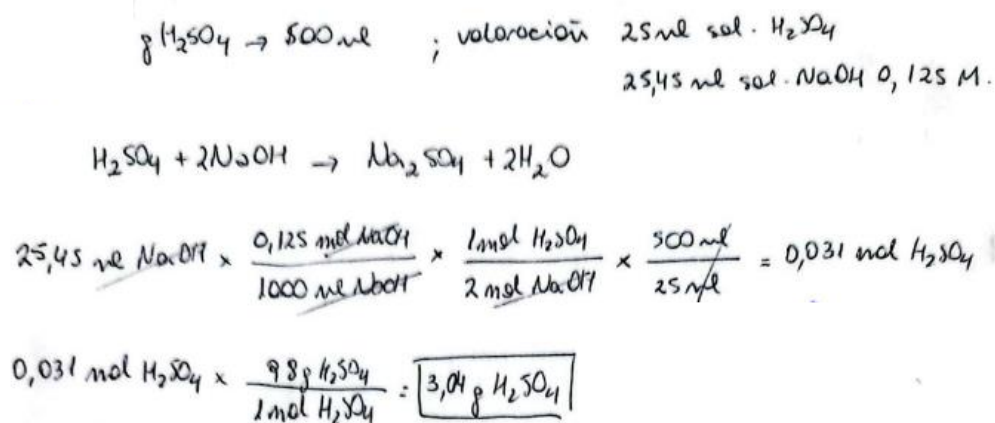 g H₂SO₄ → 500 ml ; valoración 25 ml sol. H₂SO₄
25,45 ml sol. NaOH 0,125 M.
H₂SO₄ + 2NaOH → Na₂SO₄ + 2H₂O
25,45 ml NaOH × 0,125 mol NaOH / 1000 ml NaOH × 1 mol H₂SO₄ / 2 mol NaOH × 500 ml / 25 ml = 0,031 mol H₂SO₄
0,031 mol H₂SO₄ × 98 g H₂SO₄ / 1 mol H₂SO₄ = 3,04 g H₂SO₄